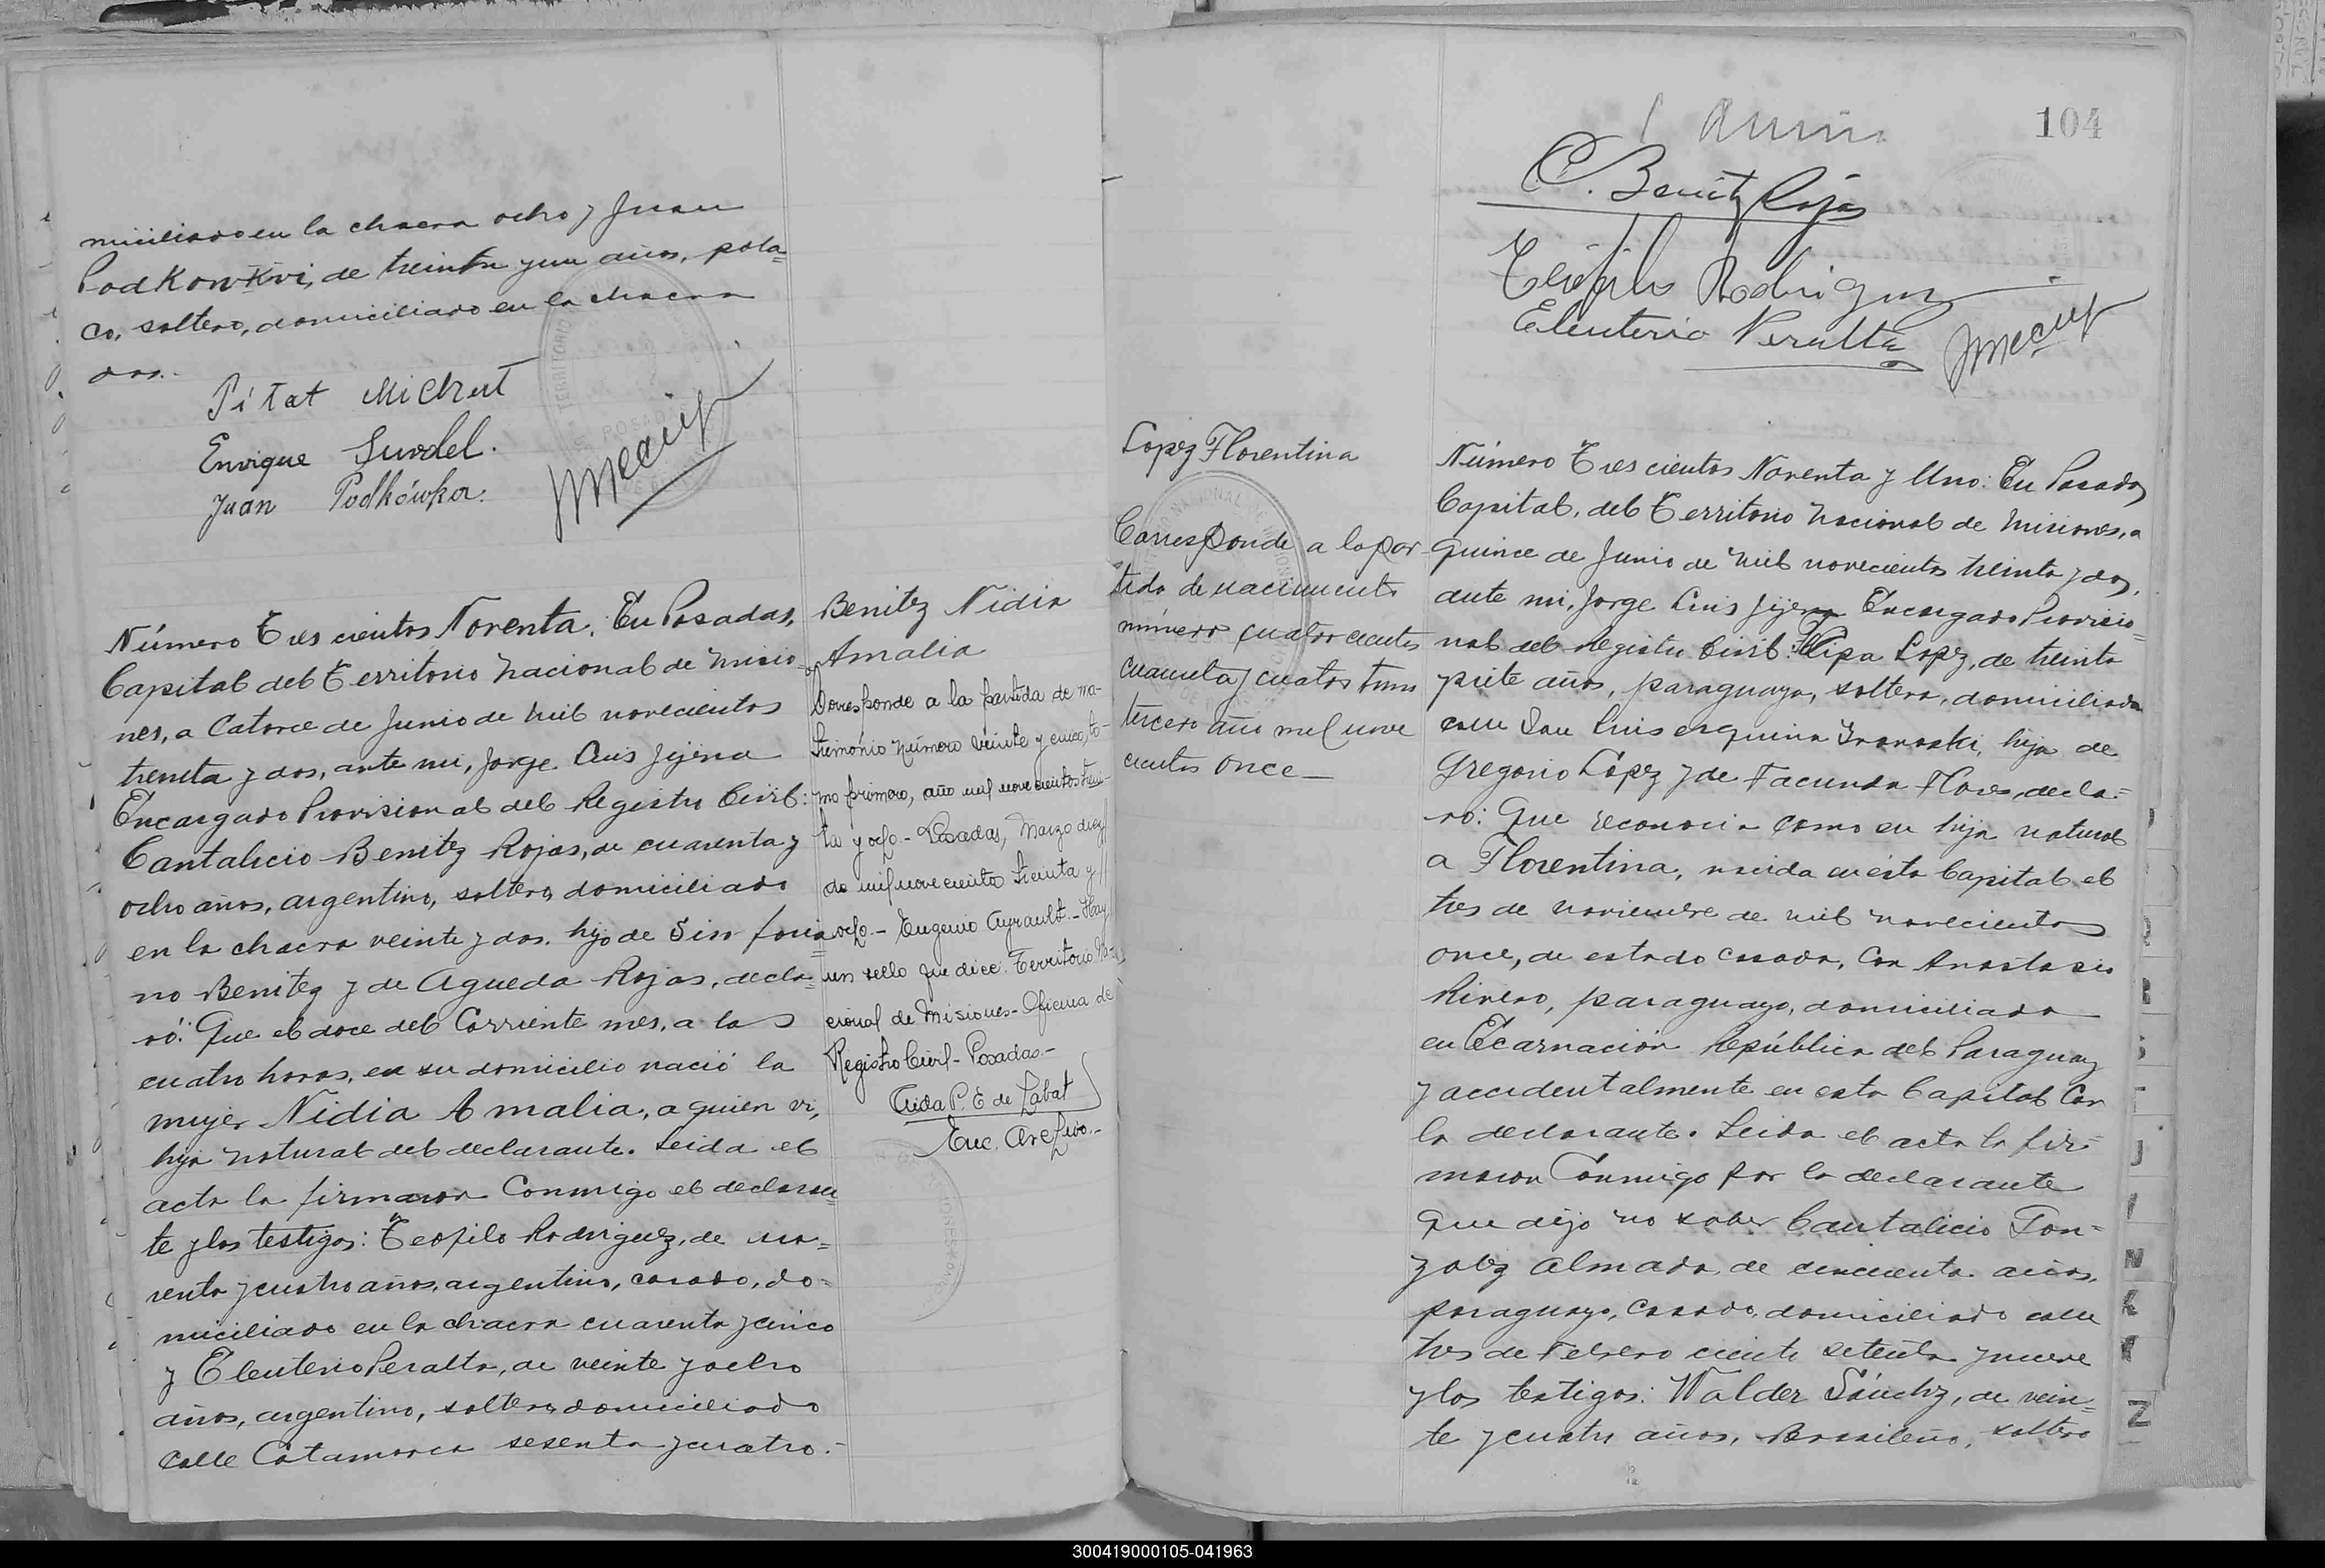 miciliado en la chacra ocho y Juan
Podkowkvi, de treinta y un años, pola=
co, soltero, domiciliado en la chacra
dos.-
Pitat Michut
Enrique Surdel.
Juan Podkówka.
Número Trescientos Noventa. En Posadas,
Capital del Territorio Nacional de Misio=
nes, a Catorce de Junio de mil novecientos
treinta y dos, ante mi, Jorge Luis Jijena
Encargado Provisional del Registro Civil:
Cantalicio Benitez Rojas, de cuarenta y
ocho años, argentino, soltero, domiciliado
en la chacra veinte y dos. hijo de Sinforia=
no Benitez y de Agueda Rojas, decla=
ró: Que el doce del Corriente mes, a las
cuatro horas, en su domicilio nació la
mujer Nidia Amalia, a quien vi,
hija natural del declarante. Leida el
acta la firmaron Conmigo el declaran=
te y los testigos: Teofilo Rodriguez, de no=
venta y cuatro años, argentino, casado, do=
miciliado en la chacra cuarenta y cinco
y Eleuterio Peralta, de veinte y ocho
años, argentino, soltero, domiciliado
Calle Catamarca sesenta y cuatro.-
Benitez Nidia
Amalia
Corresponde a la partida de ma-
trimonio número veinte y cinco, to-
mo primero, año mil novecientos trein-
ta y ocho.- Posadas, Marzo diez
de mil novecientos treinta y
ocho.- Eugenio Ayrault.- Hay
un sello que dice: Territorio Na-
cional de Misiones- Oficina de
Registro Civil- Posadas.-
Aida P. E de Labat
Enc. Archivo.-
104
C. Benitez Rojas
Teofilo Rodriguez
Eleuterio Peralta
Lopez Florentina
Corresponde a la par-
tida de nacimiento
número cuatrocientos
cuarenta y cuatro tomo
tercero año mil nove
cientos once-
Número Trescientos Noventa y Uno: En Posadas
Capital, del Territorio Nacional de Misiones, a
quince de Junio de mil novecientos treinta y dos,
ante mi, Jorge Luis Jijena Encargado Provisio=
nal del Registro Civil: Felipa Lopez, de treinta
y siete años, paraguaya, soltera, domiciliada
calle San Luis esquina Ivanoski, hija de
Gregorio López y de Facunda Flores, decla=
ró: Que reconocia como su hija natural
a Florentina, nacida en ésta Capital el
tres de noviembre de mil novecientos
once, de estado casada, con Anastasio
Rivero, paraguayo, domiciliada
en Encarnación República del Paraguay
y accidentalmente en esta Capital Con
la declarante. Leida el acta la fir=
maron Conmigo por la declarante
que dijo no saber Cantalicio Gon=
zalez Almada, de cincuenta años,
paraguayo, casado, domiciliado calle
tres de Febrero ciento setenta y nueve
y los testigos: Walder Sánchez, de vein=
te y cuatro años, Brasileño, soltero
300419000105-041963